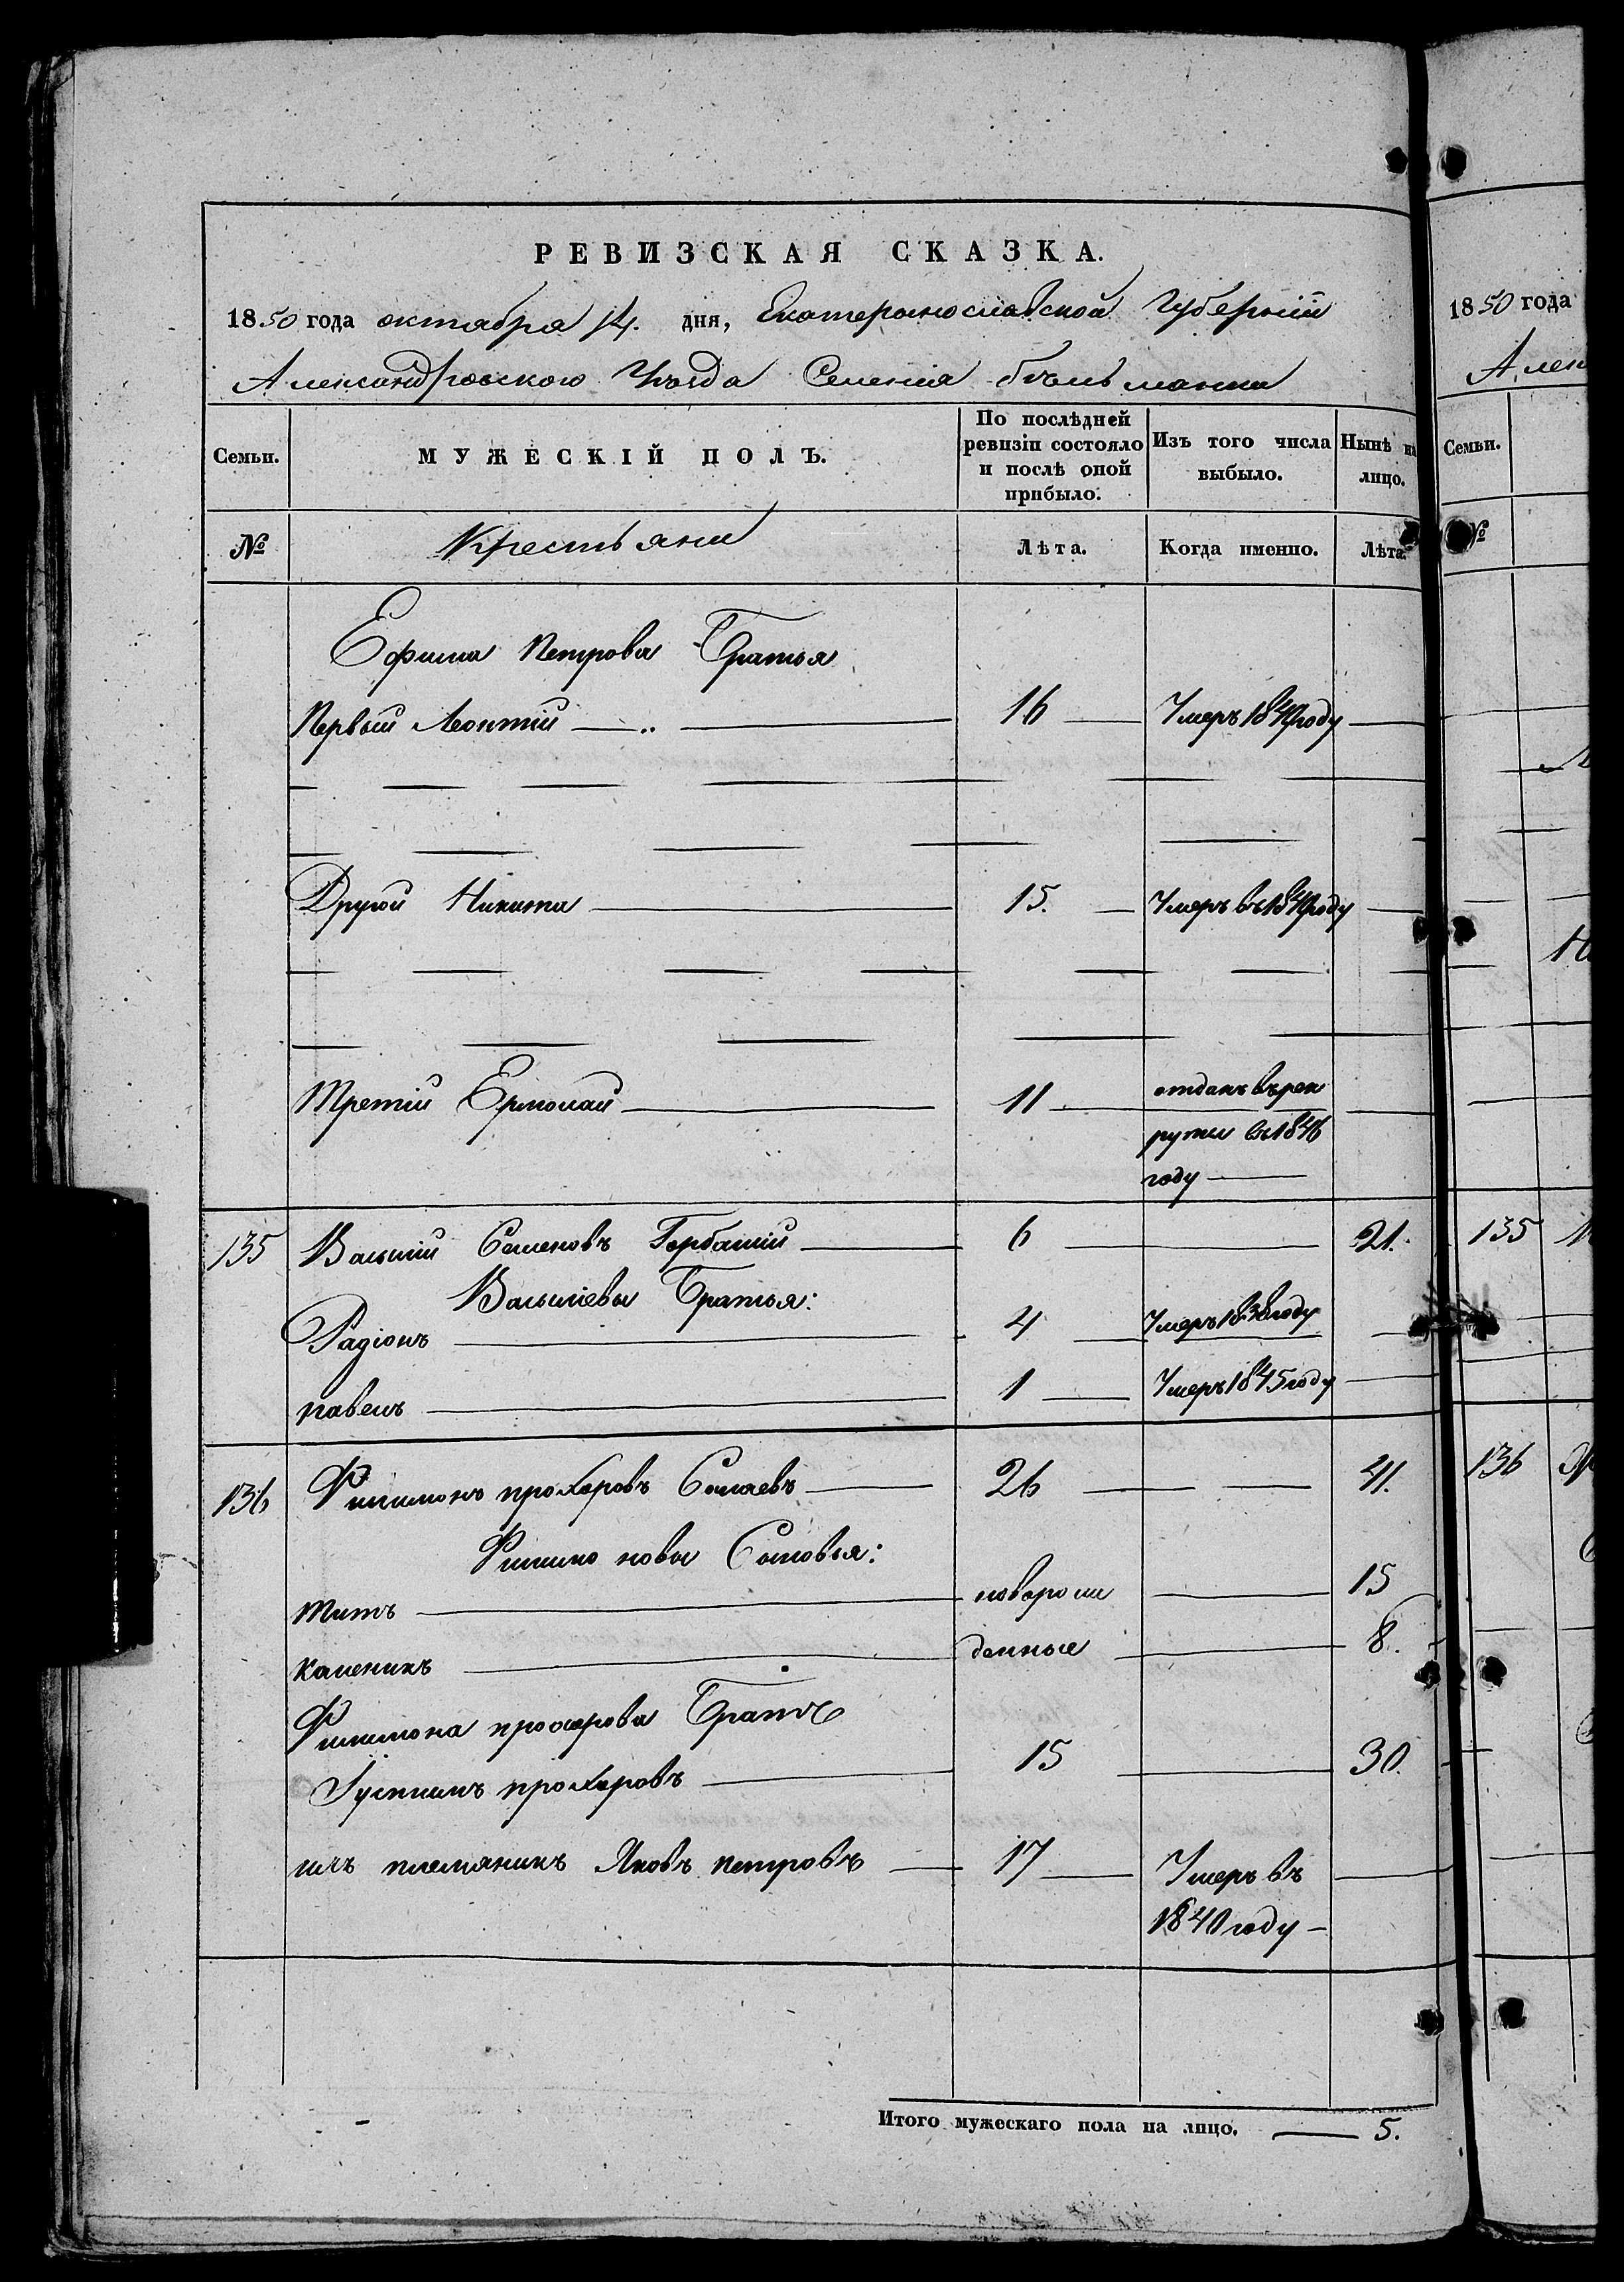 РЕВИЗСКАЯ СКАЗКА.
1850 года октября 14. дня, Екатеринославской Губерніи
Александровскаго Уѣзда Селенія бѣльманки
Семьи. МУЖЕСКІЙ ПОЛЪ. По послѣдней ревизіи состояло и послѣ оной прибыло. Изъ того числа выбыло. Нынѣ на лицо.
№ Крестьяни Лѣта. Когда именно. Лѣта.
Ефима Петрова Братья
Первый Леонтій 16 Умеръ 1849 году
Другой Никита 15. Умеръ въ 1849 году
Третій Ермолай 11 отданъ врек
руты въ 1846
году
135 Василій Семеновъ Горбатій 6 21.
Василіевы Братья:
Радіонъ 4 Умеръ 1838 году
павелъ 1 Умеръ 1845 году
136 Филимонъ прохоровъ 26 41.
Филимоновы Сыновья:
титъ новорож 15
каленикъ денные 8.
Филимона прохорова Братъ
Іустимъ прохоровъ 15 30.
ихъ племяникъ Яковъ петровъ 17 Умеръ въ
1840 году
Итого мужескаго пола на лицо. 5.
1850 года
Алек
Семьи.
№
135
136